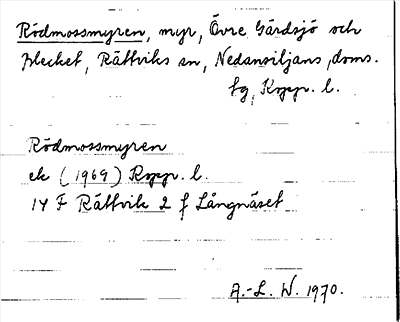 Rödmossmyren, myr, Övre Gärdsjö och
Plecket, Rättviks sn, Nedansiljans doms.
tg, Kopp. l.
Rödmossmyren
ek (1969) Kopp. l.
14 F Rättvik 2 f Långnäset
A.-L. W. 1970.